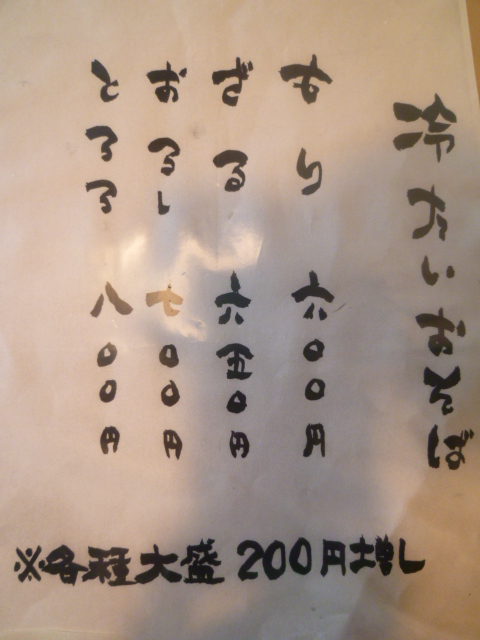 冷たいおそば
もり 六〇〇円
ざる 六五〇円
おろし 七〇〇円
とろろ 八〇〇円
※各種大盛200円増し